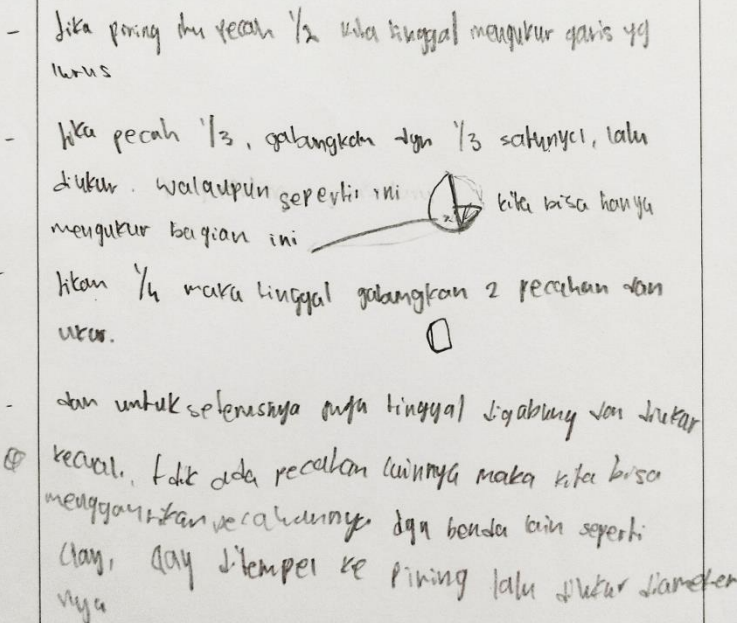 - Jika piring itu pecah 1/2 kita tinggal mengukur garis yg
lurus
- Jika pecah 1/3, gabungkan dgn 1/3 satunya, lalu
diukur. walaupun seperti ini kita bisa hanya
mengukur bagian ini
Jikan 1/4 maka tinggal gabungkan 2 pecahan dan
ukur.
- dan untuk seterusnya juga tinggal digabung dan diukur
kecuali, tdk ada pecahan lainnya maka kita bisa
menggantikan pecahannya dgn benda lain seperti
Clay, Clay ditempel ke piring lalu diukur diameter
nya